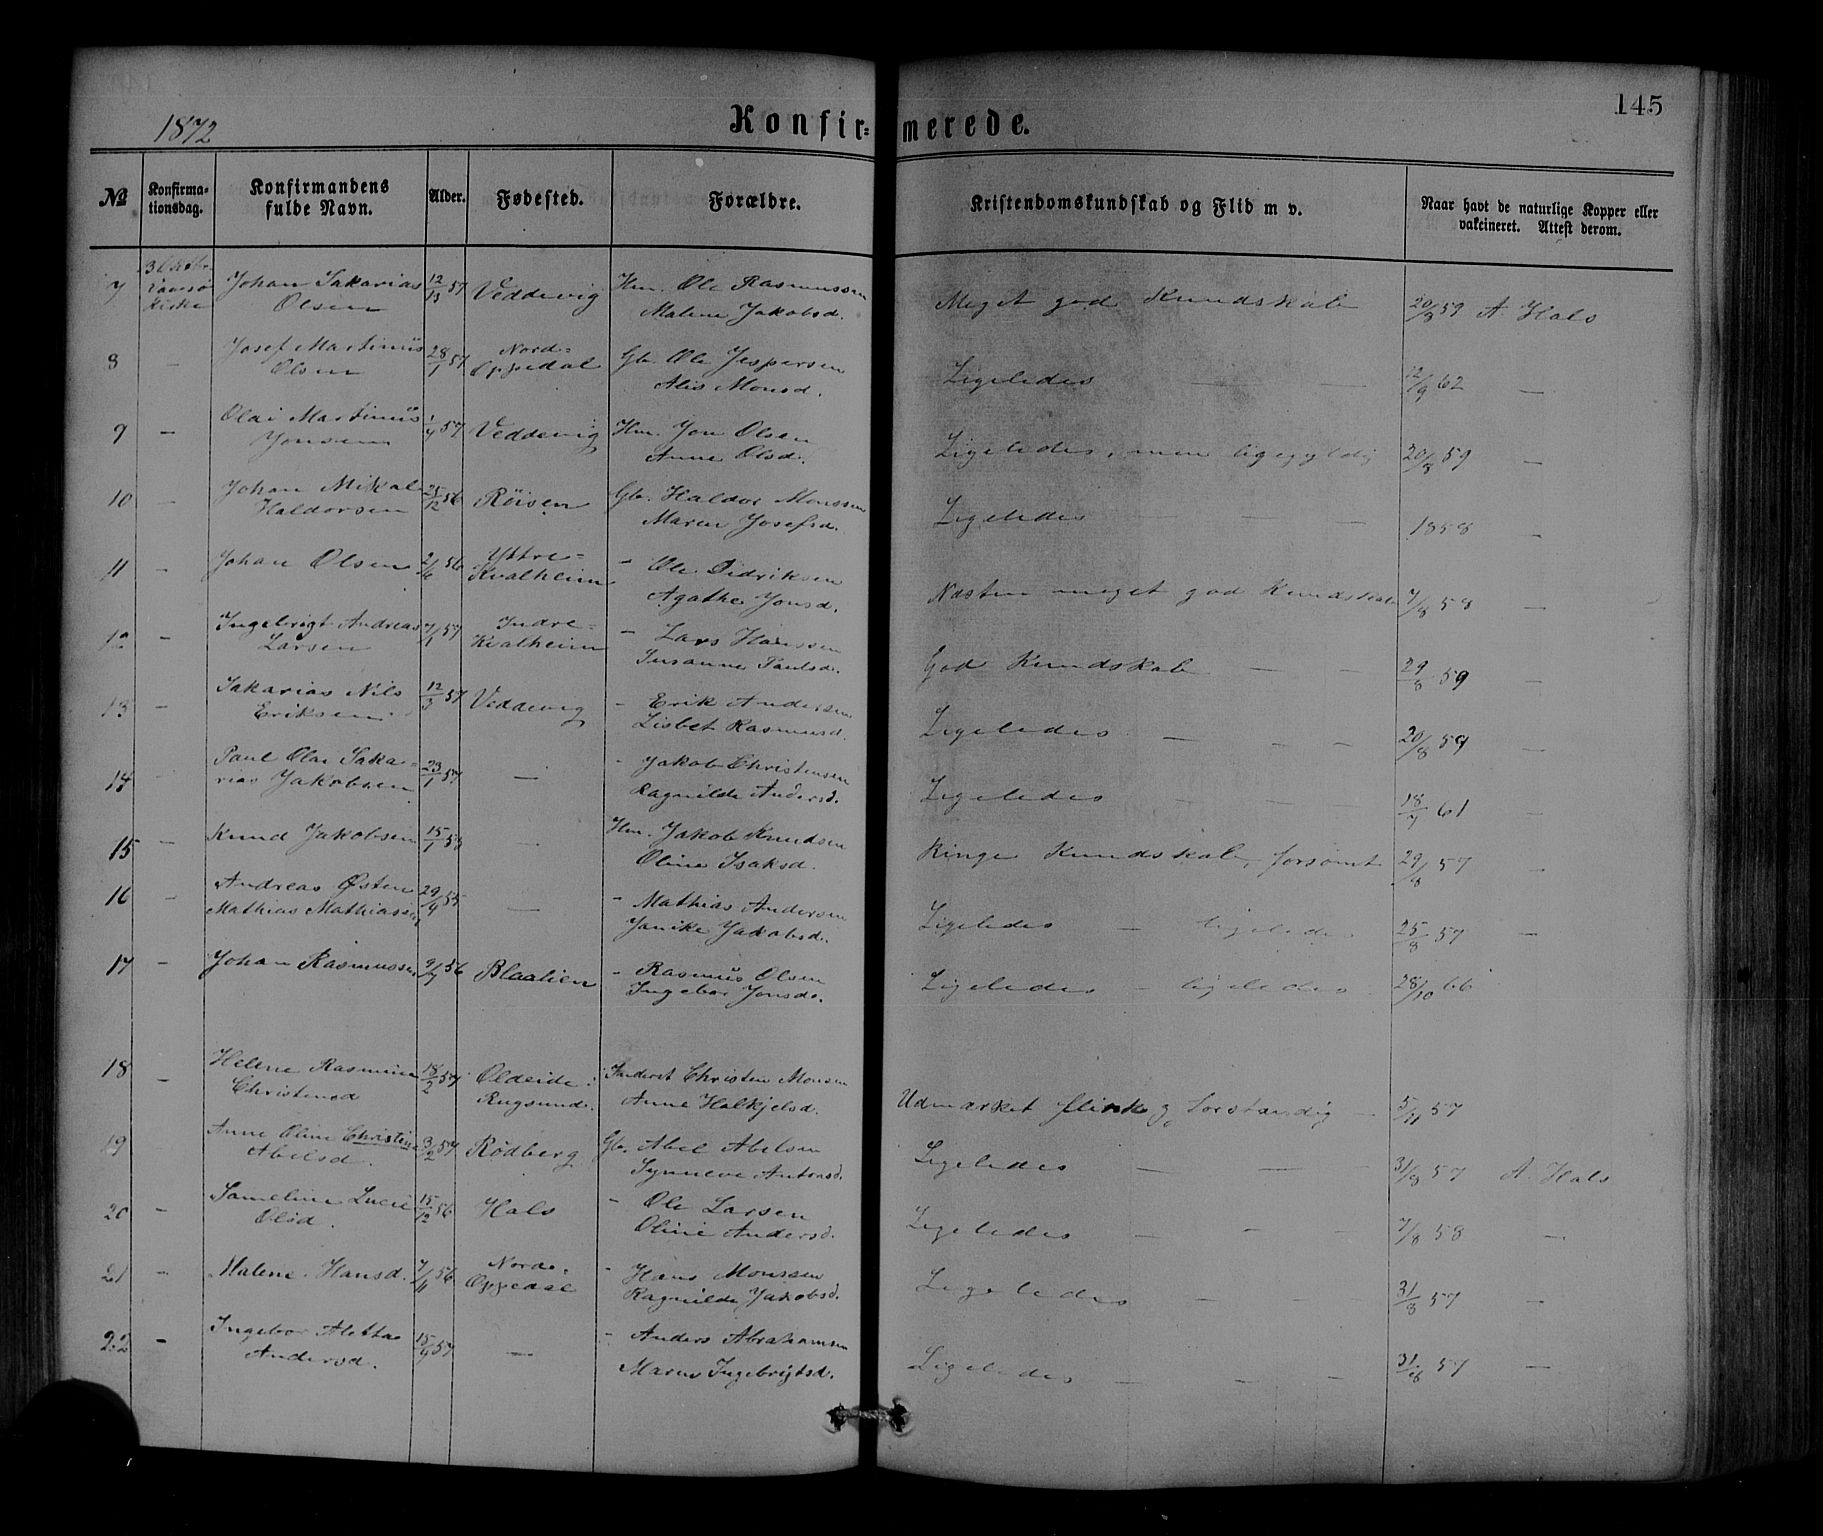 1872
Konfir= merede.
145
No
Konfirma-
tionsdag.
Konfirmandens
fulde Navn.
Alder.
Fødested.
Forældre.
Kristendomskundskab og Flid m v.
Naar havt de naturlige Kopper eller
vakcineret. Attest derom.
7 Johan Sakarias 57 Veddevig Hm. Ole Rasmussen
Kirke Olsen Malene Jakobsd. Meget god Kundskab 20/8 59 A. Hals
8 – Josef Martinus 28/1 57 Nord= Gb. Ole Jespersen
Olsen Oppedal Alis Monsd. Ligeledes — — 12/9 62 —
9 – Olai Martinus 57 Veddevig Hm. Jon Olsen
Jonsen Anne Olsd. Ligeledes, men ligegyldig 20/8 59 —
10 – Johan Mikal 25/12 56 Röisen Gb. Haldor Monssen
Haldorsen Maren Josefsd. Ligeledes — — 1858 —
11 – Johan Olsen 2/6 56 Yttre= – Ole Didriksen
Kvalheim Agathe Jonsd. Næsten meget god Kundskab 7/8 58 —
12 – Ingebrigt Andreas 7/1 57 Indre= – Lars Hanssen
Larsen Kvalheim Susanne Paulsd. God Kundskab — — 29/8 59 —
13 – Sakarias Nils 12/3 57 Veddevig – Erik Andersen
Eriksen Lisbet Rasmusd. Ligeledes — — — 20/8 59 —
14 – Paul Olai Saka- 23/1 57 — – Jakob Christensen
rias Jakobsen Ragnilde Andersd. Ligeledes — — — 18/7 61 —
15 – Knud Jakobsen 15/1 Hm. Jakob Knudsen
Oline Isaksd. Ringe Kundskab, forsömt 29/8 57 —
16 – Andreas Østen 29/4 55 — – Mathias Andersen
Mathias Mathiassen Janike Jakobsd. Ligeledes — ligeledes 25/8 57 —
17 – Johan Rasmussen 56 Blaalien – Rasmus Olsen
Ingebor Jonsd. Ligeledes – ligeledes 28/10 66
18 – Helene Rasmine 18/2 57 Oldeide Christen Monsen
Christensd Rugsund. Anne Halkjelsd. Udmærket flink og forstandig — 57
19 Anne Oline Christine 3/2 57 Rödberg Gb. Abel Abelsen
Abelsd. Synneve Antonsd. Ligeledes — — — 31/8 57 A. Hals
20 – Sameline Lucie 15/12 56 Hals – Ole Larsen
Olsd. Oline Andersd. Ligeledes — — 7/8 58 —
21 – Malene Hansd. 7/11 56 Nord= – Hans Monsen
Oppedal Ragnilde Jakobsd. Ligeledes — — 31/8 57 —
22 – Ingebor Aletta 57 — – Anders Abrahamsen
Andersd. Maren Ingebrigtsd. Ligeledes — — — 31/8 57 —